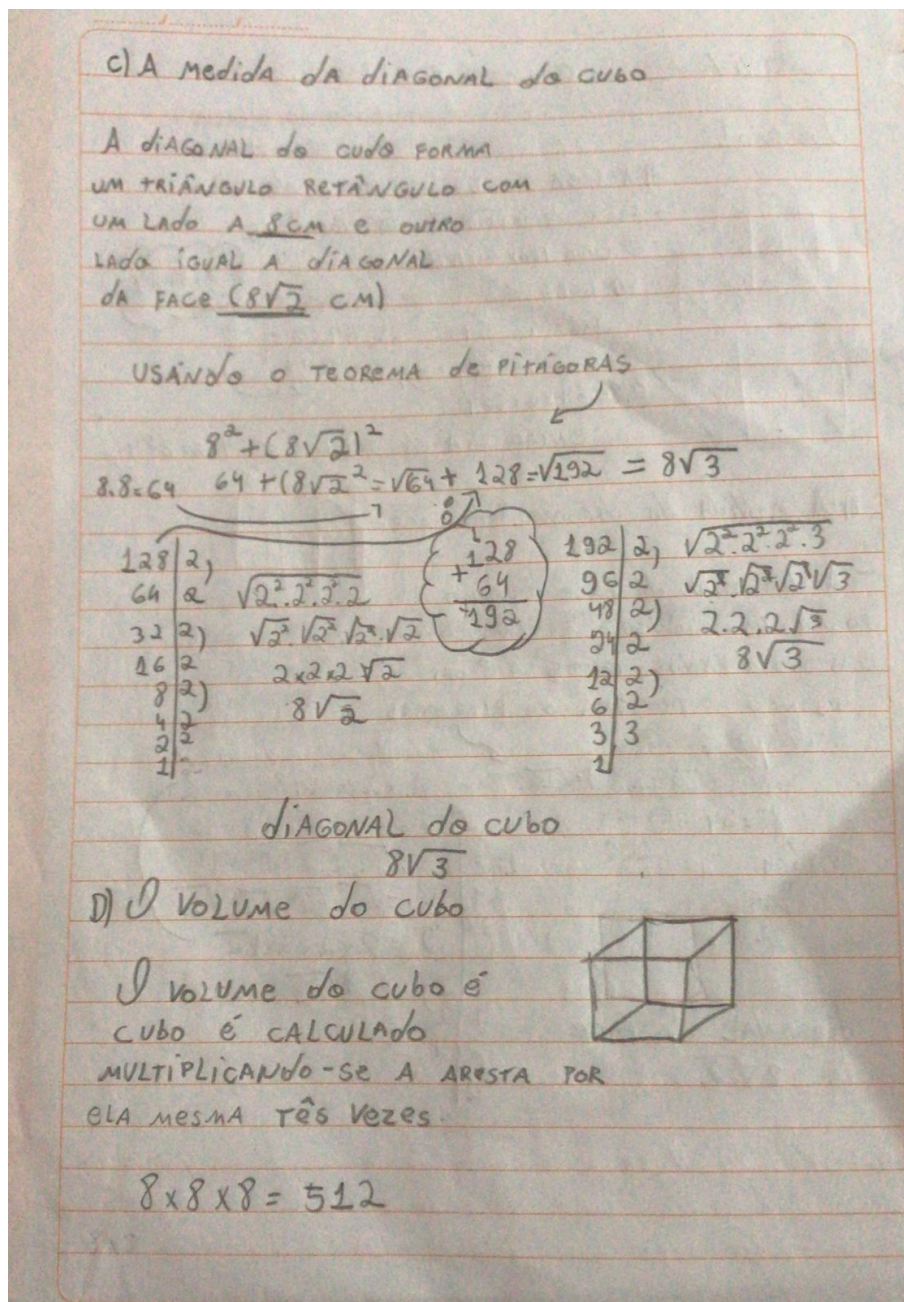 C) A MEDIDA DA DIAGONAL do CUBO
A DIAGONAL do CUDO FORMA
UM TRIÂNGULO RETÂNGULO COM
UM LADO A 8CM e OUTRO
LADO IGUAL A DIAGONAL
DA FACE (8√2 CM)
USANDO O TEOREMA de PITÁGORAS
8² + (8√2)²
8.8=64 64 + (8√2² = √64 + 128 = √192 = 8√3
128 | 2
64 | 2 √2².2².2².2
32 | 2 √2².√2².√2².√2
16 | 2 2×2×2√2
8 | 2 8√2
4 | 2
2 | 2
1
128
+ 64
192
192 | 2 √2².2².2².3
96 | 2 √2².√2².√2².√3
48 | 2 2.2.2√3
24 | 2 8√3
12 | 2
6 | 2
3 | 3
1
DIAGONAL do CUBO
8√3
D) O VOLUME do CUBO
O VOLUME do CUBO é
CUBO é CALCULADO
MULTIPLICANDO-SE A ARESTA POR
ELA MESMA TÊS VEZES.
8×8×8= 512